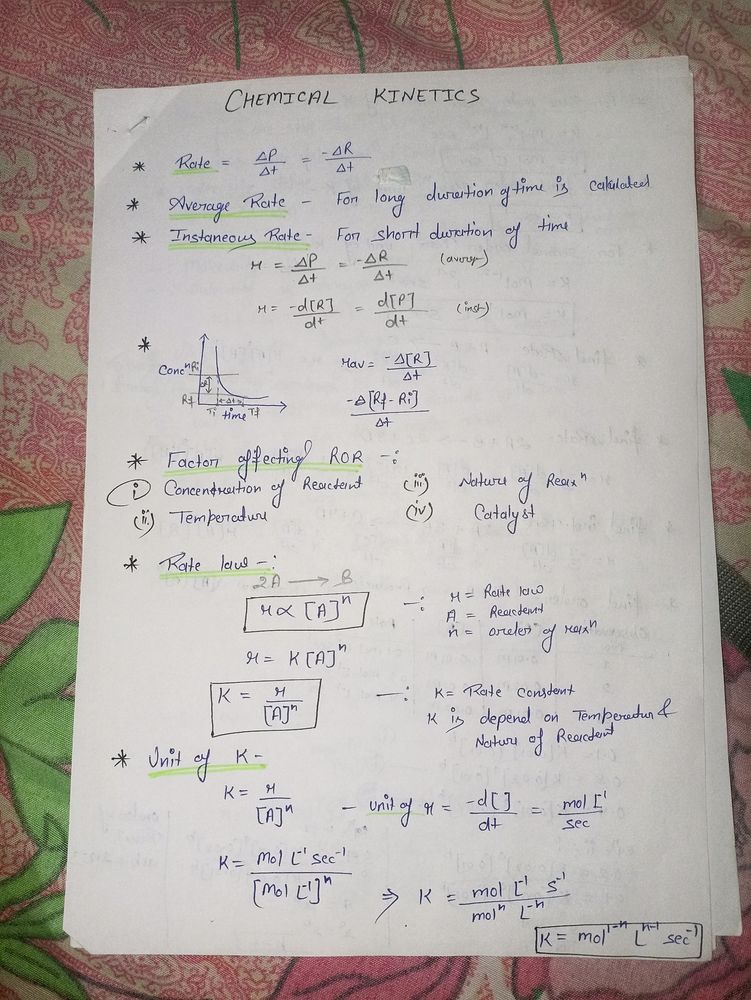 CHEMICAL KINETICS
* Rate = ΔP/Δt = -ΔR/Δt
* Average Rate - For long duration of time is calculated
* Instaneous Rate - For short duration of time
r = ΔP/Δt = -ΔR/Δt (averge)
r = -d[R]/dt = d[P]/dt (inst)
*
Concⁿ Ri
dR
Rf
Ti Δt Tf
time
rav = -Δ[R]/Δt
-Δ[Rf - Ri]/Δt
* Factor affecting ROR -:
(i) Concentration of Reactant (iii) Nature of Reaxⁿ
(ii) Temperature (iv) Catalyst
* Rate law -:
2A → B
r ∝ [A]ⁿ -: r = Rate law
A = Reactant
n = order of reaxⁿ
r = K[A]ⁿ
K = r/[A]ⁿ -: K = Rate constant
K is depend on Temperatur &
Nature of Reactant
* Unit of K -
K = r/[A]ⁿ - unit of r = -d[ ]/dt = mol L⁻¹/sec
K = Mol L⁻¹ sec⁻¹/[Mol L⁻¹]ⁿ ⇒ K = mol L⁻¹ s⁻¹/molⁿ L⁻ⁿ
K = mol¹⁻ⁿ Lⁿ⁻¹ sec⁻¹